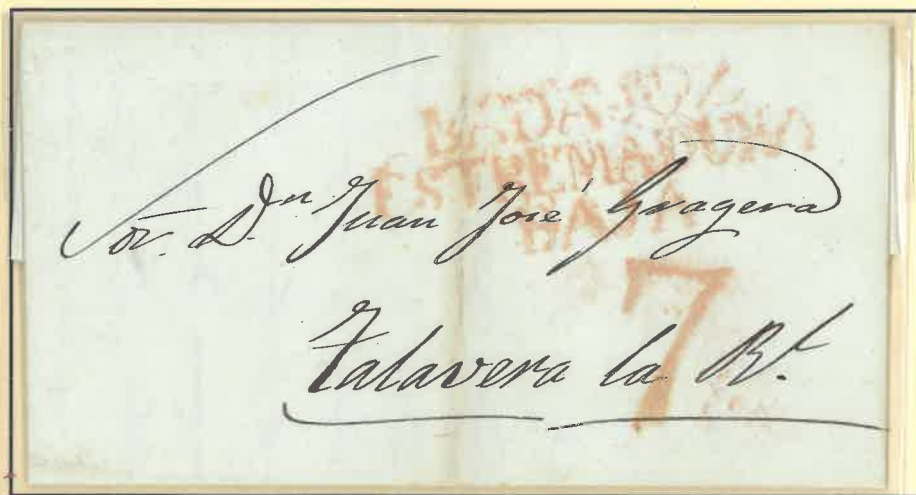 BADAJOZ
ESTREMADURA
BAJA
Sor. Dn. Juan José Gragera
7
Talavera la Rl.